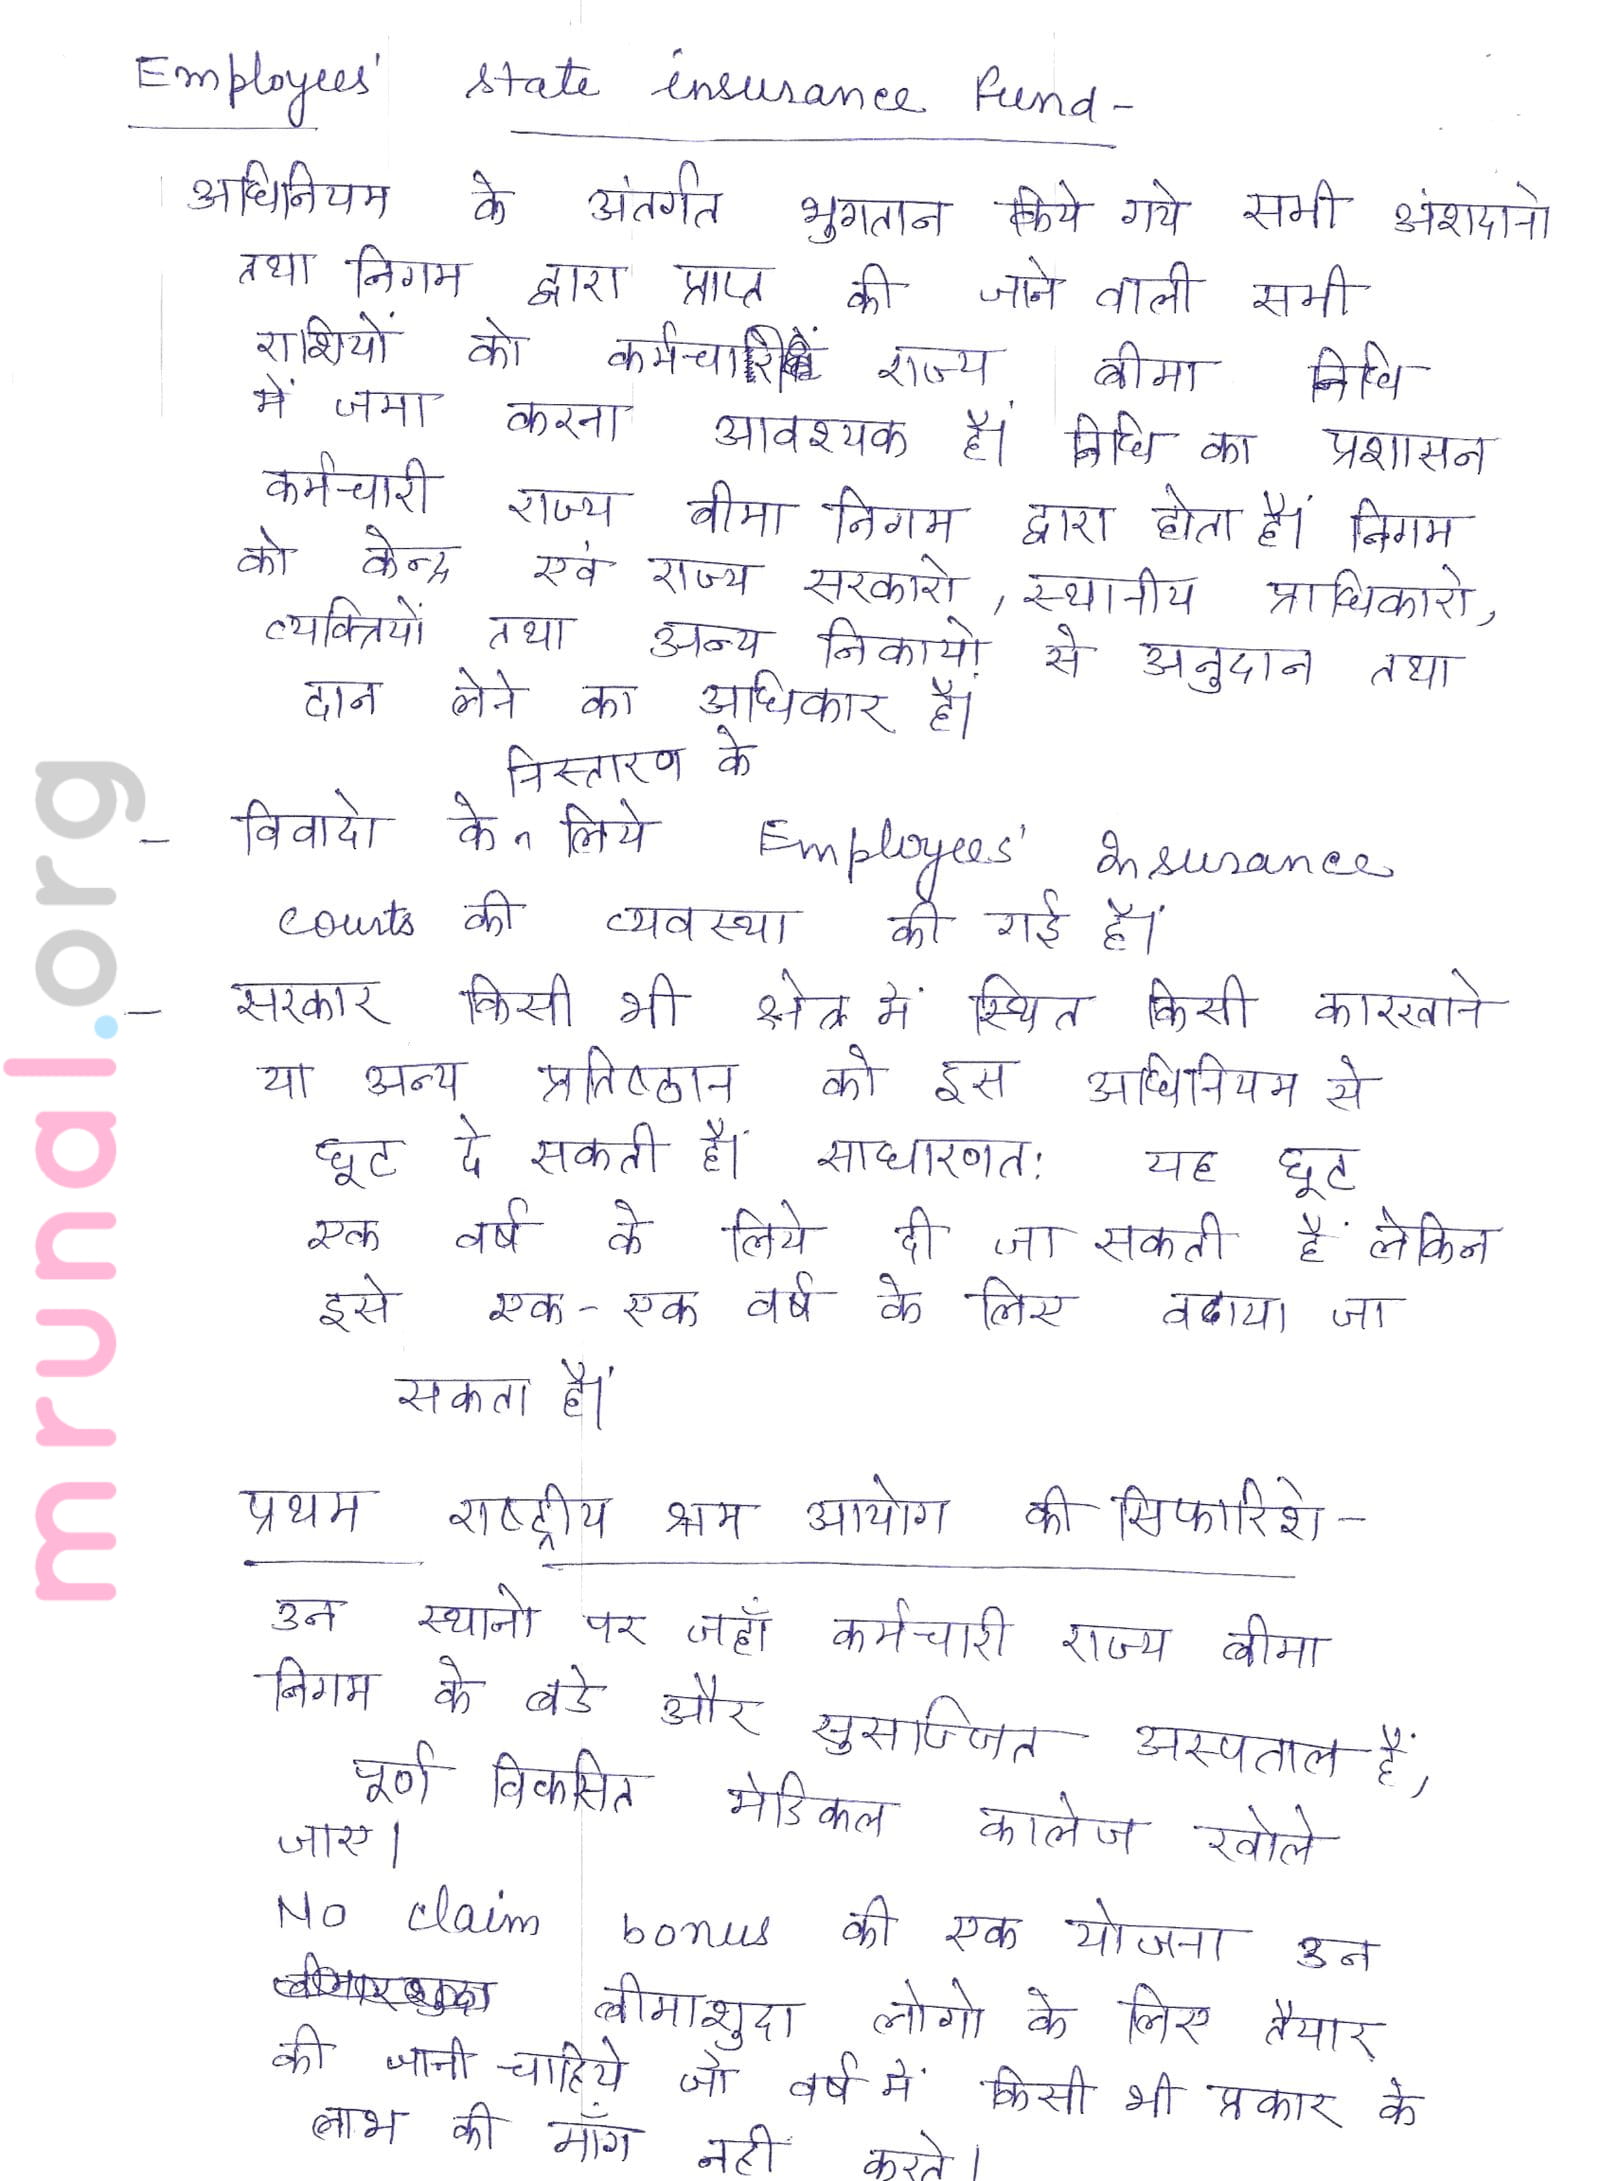 Employees' state insurance Fund -
अधिनियम के अंतर्गत भुगतान किये गये सभी अंशदानो
तथा निगम द्वारा प्राप्त की जाने वाली सभी
राशियों को राज्य बीमा निधि
में जमा करना आवश्यक हैं। निधि का प्रशासन
कर्मचारी राज्य बीमा निगम द्वारा होता हैं। निगम
को केन्द्र एवं राज्य सरकारो, स्थानीय प्राधिकारो,
व्यक्तियों तथा अन्य निकायो से अनुदान तथा
दान लेने का अधिकार हैं।
निस्तारण के
- विवादो के लिये Employees' Insurance
courts की व्यवस्था की गई हैं।
- सरकार किसी भी क्षेत्र में स्थित किसी कारखाने
या अन्य प्रतिष्ठान को इस अधिनियम से
छूट दे सकती हैं। साधारणत: यह छूट
एक वर्ष के लिये दी जा सकती हैं लेकिन
इसे एक-एक वर्ष के लिए बढाया जा
सकता हैं।
प्रथम राष्ट्रीय श्रम आयोग की सिफारिशे -
उन स्थानो पर जहाँ कर्मचारी राज्य बीमा
निगम के बडे और सुसज्जित अस्पताल हैं,
पूर्ण विकसित मेडिकल कालेज खोले
जाए।
No claim bonus की एक योजना उन
बीमाशुदा लोगो के लिए तैयार
की जानी चाहिये जो वर्ष में किसी भी प्रकार के
लाभ की माँग नही करते।
mrunal.org